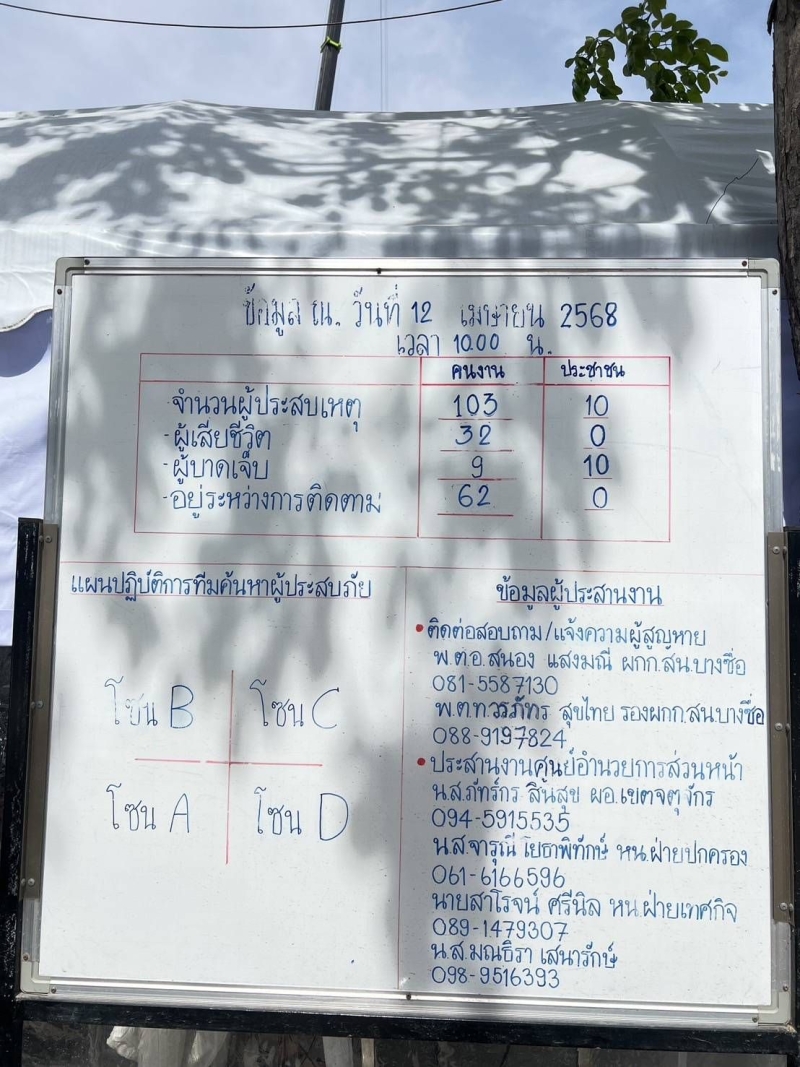 ข้อมูล ณ. วันที่ 12 เมษายน 2568
เวลา 10.00 น.
คนงาน ประชาชน
จำนวนผู้ประสบเหตุ 103 10
-ผู้เสียชีวิต 32 0
-ผู้บาดเจ็บ 9 10
-อยู่ระหว่างการติดตาม 62 0
แผนปฏิบัติการทีมค้นหาผู้ประสบภัย
โซน B โซน C
โซน A โซน D
ข้อมูลผู้ประสานงาน
• ติดต่อสอบถาม/แจ้งความผู้สูญหาย
พ.ต.อ.สนอง แสงมณี ผกก.สน.บางซื่อ
081-5587130
พ.ต.ท.วรภัทร สุขไทย รองผกก.สน.บางซื่อ
088-9197824
• ประสานงานศูนย์อำนวยการส่วนหน้า
น.ส.ภัทร์กร สินสุข ผอ.เขตจตุจักร
094-5915535
น.ส.จารุณี โยธาพิทักษ์ หน.ฝ่ายปกครอง
061-6166596
นายสาโรจน์ ศรีนิล หน.ฝ่ายเทศกิจ
089-1479307
น.ส.มณธิรา เสนารักษ์
098-9516393